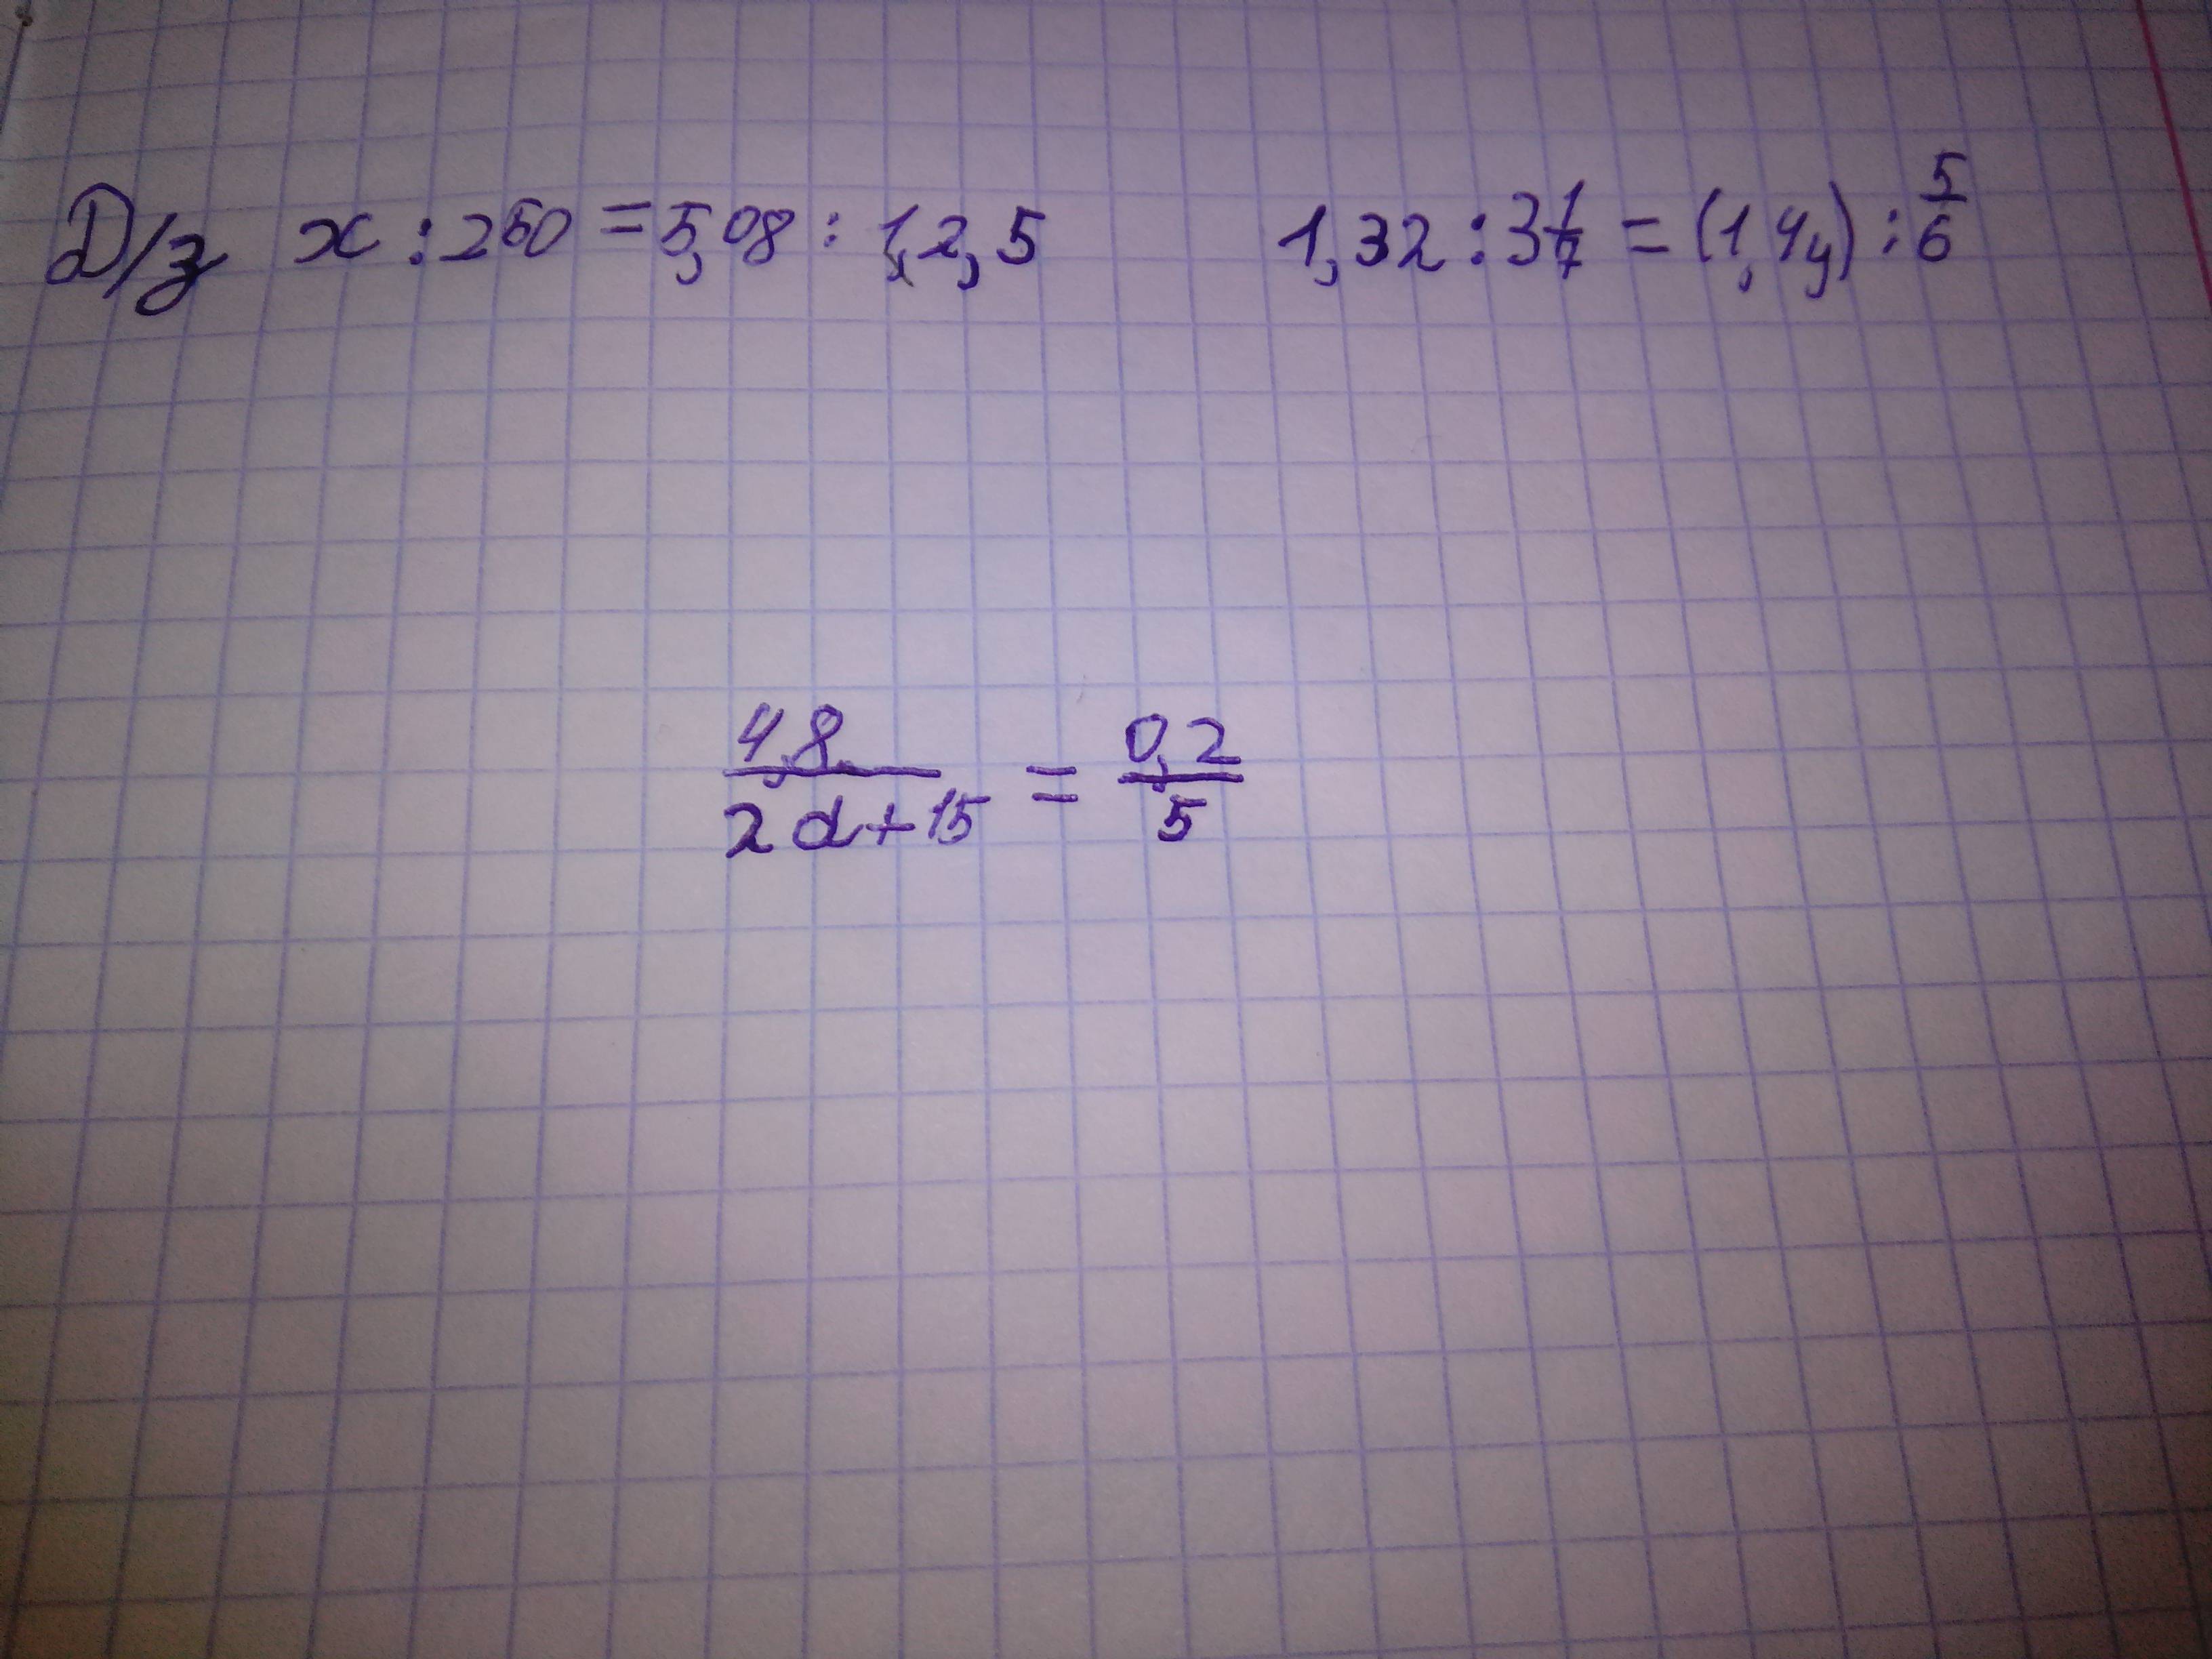 Д/з x : 250 = 5,08 : 1,2,5 1,32 : 3 1/7 = (1,4y) : 5/6
4,8 / 2d+15 = 0,2 / 5